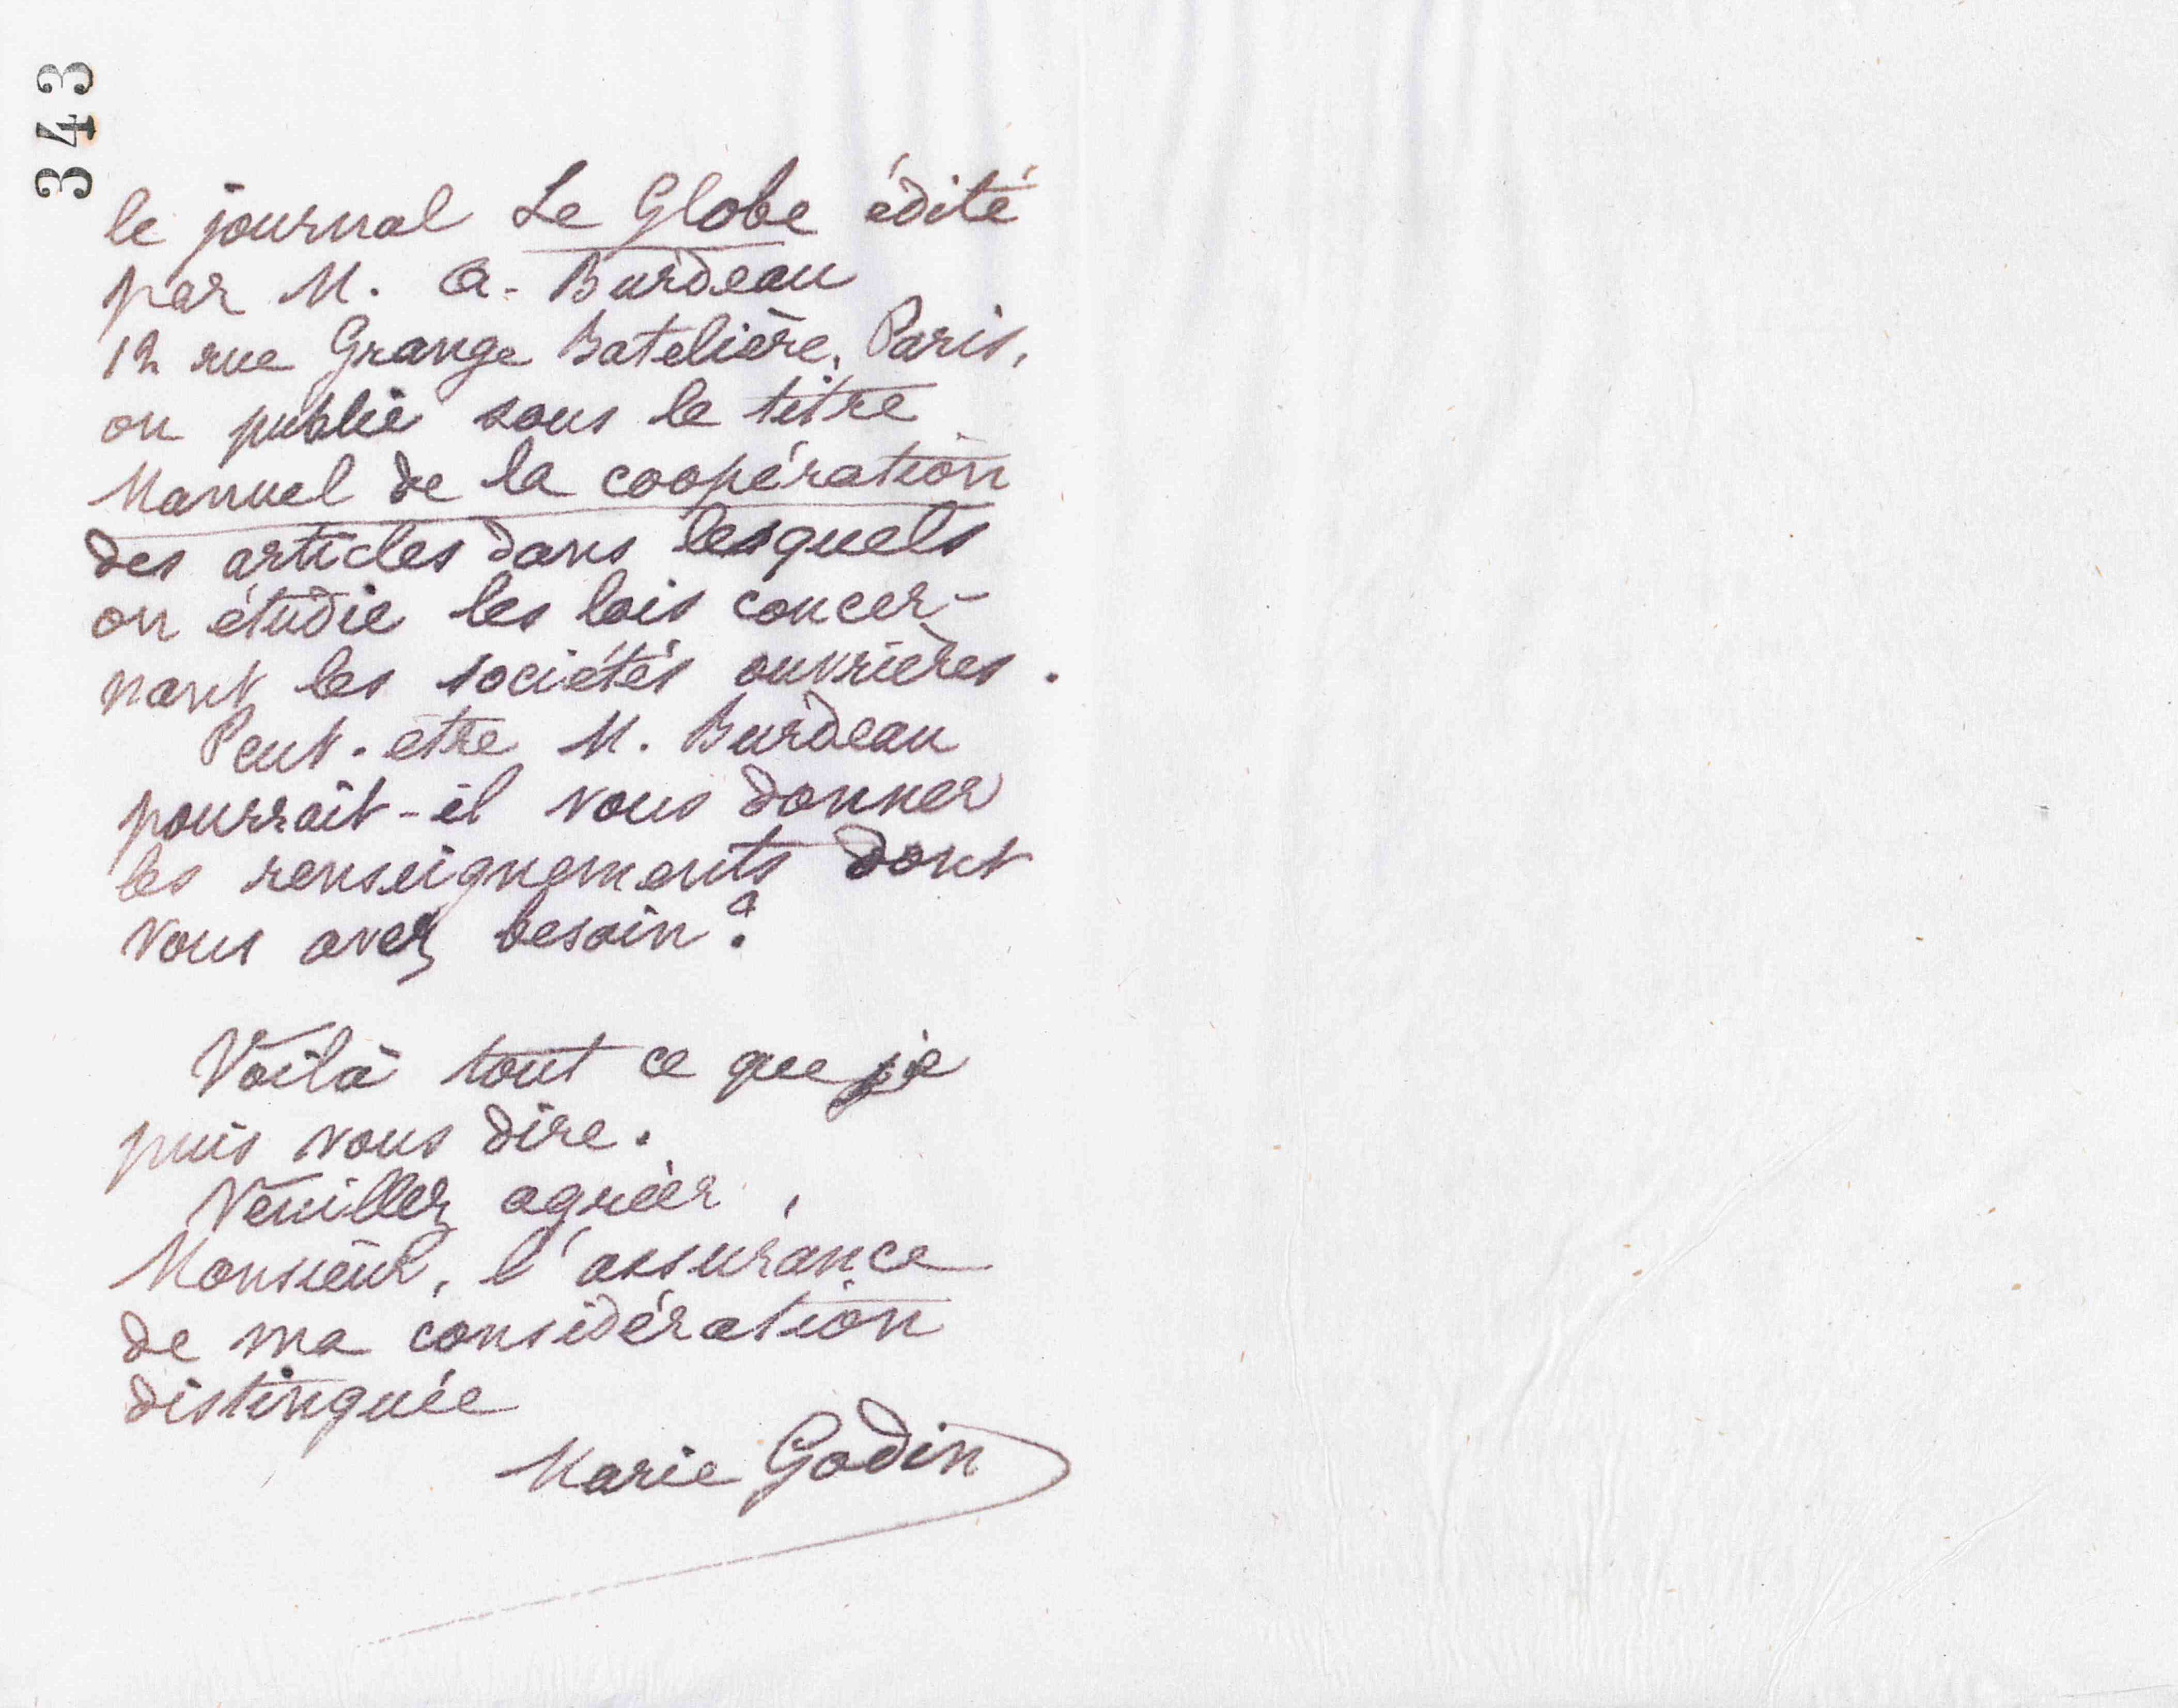 343
le journal Le Globe édité
par M. A. Burdeau
12 rue Grange Batelière, Paris,
on publie sous le titre
Manuel de la coopération
des articles dans lesquels
on étudie les lois concer-
nant les sociétés ouvrières.
Peut-être M. Burdeau
pourrait-il vous donner
les renseignements dont
vous avez besoin ?
Voilà tout ce que je
puis vous dire.
Veuillez agréer,
Monsieur, l'assurance
de ma considération
distinguée
Marie Godin